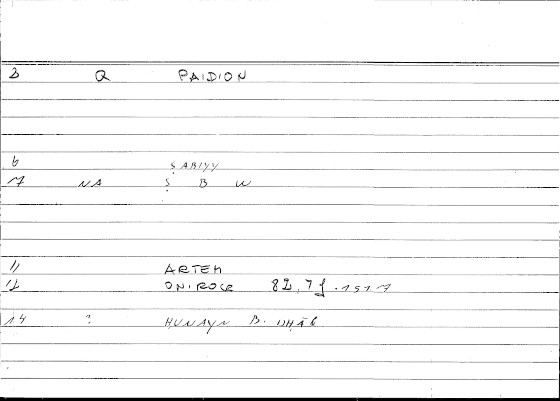 3 Q PAIDION
6 ṢABIYY
7 NA Ṣ B W
11 ARTEM
12 ONIROCR 82, 7f. 1517
14 ? ḤUNAYN B.